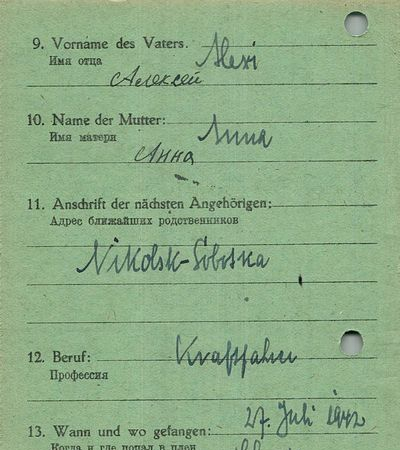 9. Vorname des Vaters. Alexi
Имя отца
Алексей
10. Name der Mutter: Anna
Имя матери
Анна
11. Anschrift der nächsten Angehörigen:
Адрес ближайших родственников
Nikolsk-Sloboska
12. Beruf: Kraftfahrer
Профессия
27. Juli 1942
13. Wann und wo gefangen:
Когда и где попал в плен